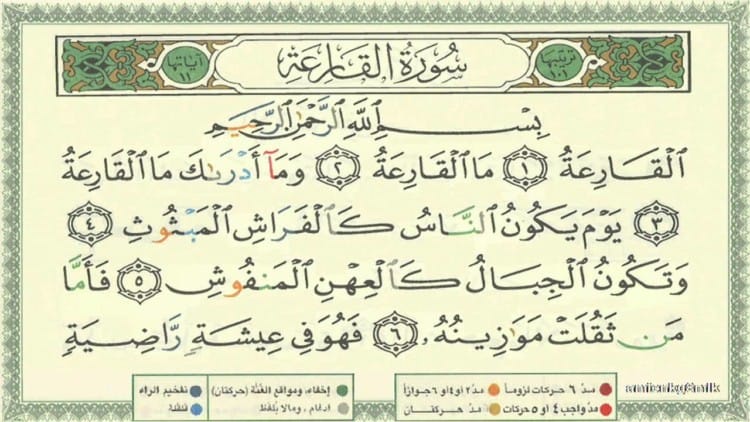 ترتيبها ١٠١ سُورَةُ القَارِعَةِ آياتها ١١
بِسْمِ ٱللَّهِ ٱلرَّحْمَٰنِ ٱلرَّحِيمِ
ٱلْقَارِعَةُ ١ مَا ٱلْقَارِعَةُ ٢ وَمَآ أَدْرَىٰكَ مَا ٱلْقَارِعَةُ
٣ يَوْمَ يَكُونُ ٱلنَّاسُ كَٱلْفَرَاشِ ٱلْمَبْثُوثِ ٤
وَتَكُونُ ٱلْجِبَالُ كَٱلْعِهْنِ ٱلْمَنفُوشِ ٥ فَأَمَّا
مَن ثَقُلَتْ مَوَٰزِينُهُۥ ٦ فَهُوَ فِى عِيشَةٍ رَّاضِيَةٍ
مدّ ٦ حركات لزوماً مدّ ٢ أو ٤ أو ٦ جوازاً إخفاء، ومواقع الغُنَّة (حركتان) تفخيم الراء
مدّ واجب ٤ أو ٥ حركات مدّ حركتان ادغام، ومالا يُلفَظ قلقلة